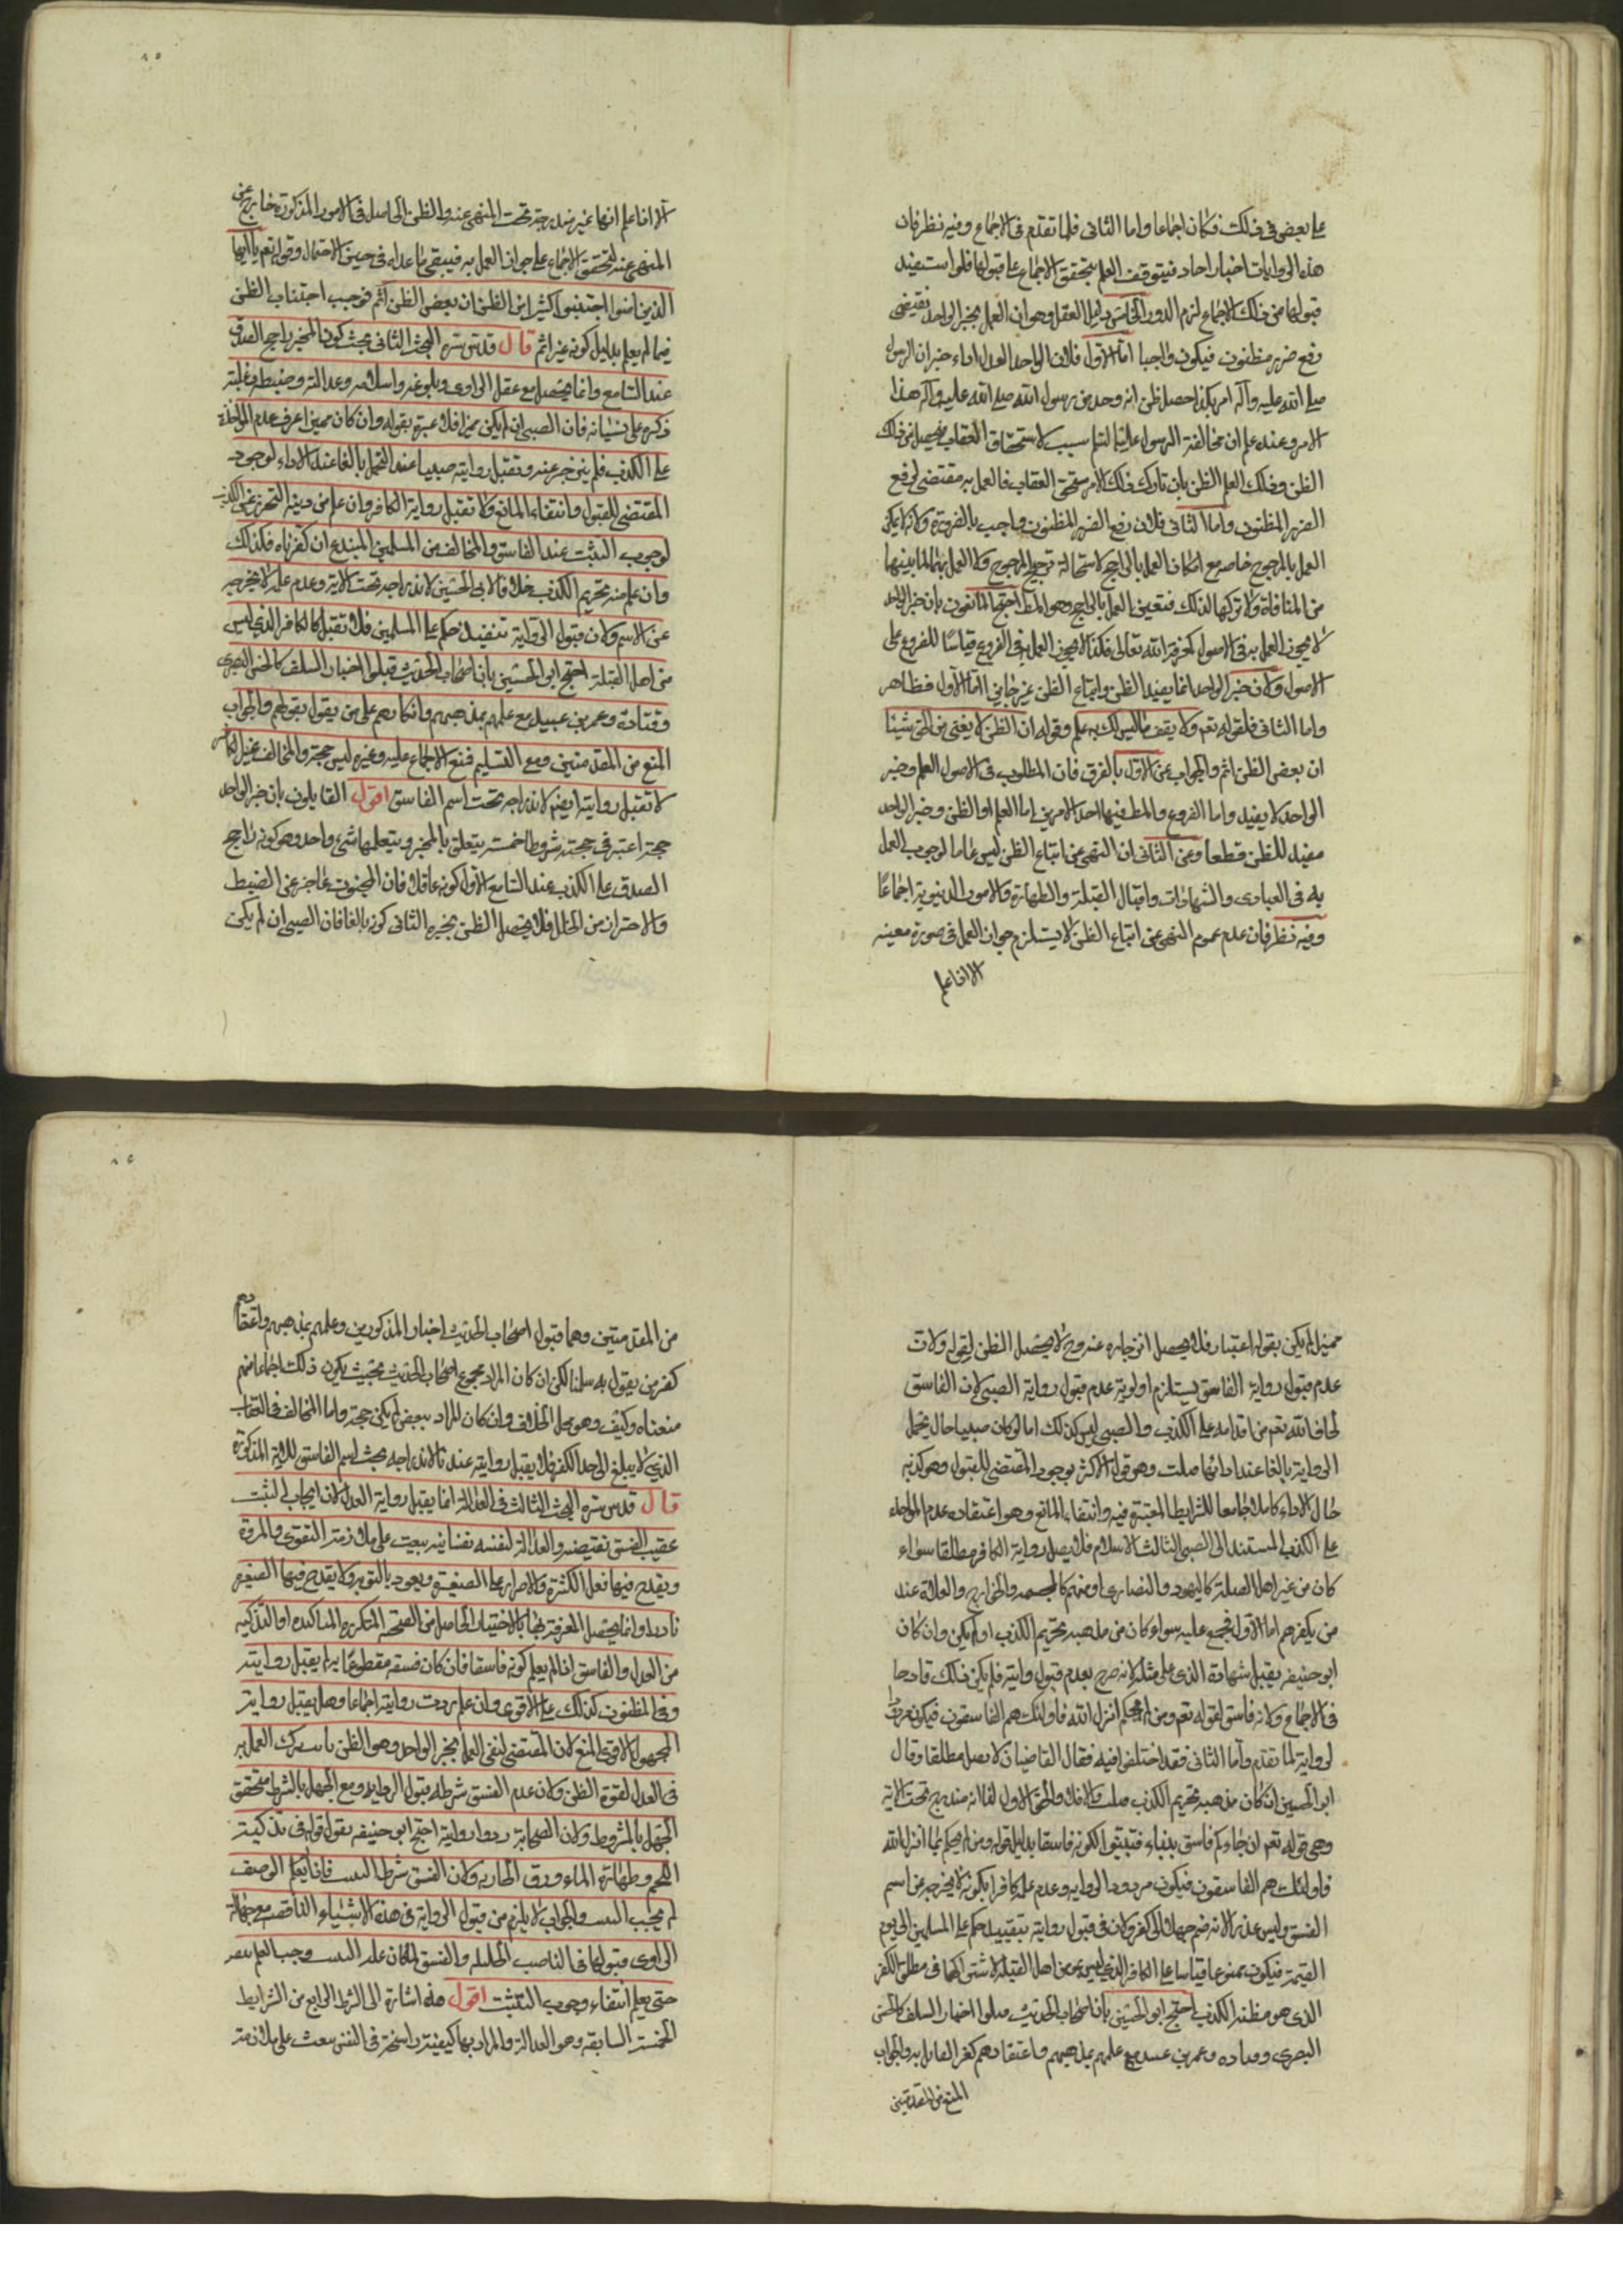 على بعض في ذلك فكان اجماعا واما الثاني فلما تقدم في الاجماع وفيه نظر فان
هذه الروايات اخبار احاد فيتوقف العلم بتحقق الاجماع على قبولها فلو استفيد
قبولها من ذلك الاجماع لزم الدور الخامس دليل العقل وهو ان العمل بخبر الواحد يقتضى
دفع ضرر مظنون فيكون واجبا اما الاول فلان الواحد العدل اذا اخبر ان الرسول
صلى الله عليه وآله امر بكذا حصل ظن انه وجد من رسول الله صلى الله عليه وآله هذا
الامر وعنده علم ان مخالفة الرسول عليه السلم سبب لاستحقاق العقاب فيحصل من ذلك
الظن وذلك العلم الظن بان تارك ذلك الامر مستحق العقاب فالعمل به مقتضى لدفع
الضرر المظنون واما الثاني فلان دفع الضرر المظنون واجب بالضرورة ولانه لا يمكن
العمل بالمرجوح خاصه مع امكان العمل بالراجح لاستحالة ترجيح المرجوح ولا العمل بهما لما بينهما
من المنافاة ولا تركهما لذلك فتعين العمل بالراجح وهو المط احتج المانعون بأن خبر الواحد
لا يجوز العمل به في الاصول كمعرفة الله تعالى فكذا لا يجوز العمل به في الفروع قياسا للفروع على
الاصول ولان خبر الواحد انما يفيد الظن واتباع الظن غير جايز اما الاول فظاهر
واما الثاني فلقوله تعم ولا تقف ما ليس لك به علم وقوله ان الظن لا يغنى من الحق شيئا
ان بعض الظن اثم والجواب عن الاول بالفرق فان المطلوب في الاصول العلم وخبر
الواحد لا يفيد واما الفروع والمط فيها احد الامرين اما العلم او الظن وخبر الواحد
مفيد للظن قطعا وعن الثاني ان النهى عن اتباع الظن ليس عاما لوجوب العمل
به في الفتاوى والشهادات واقبال القبلة والطهارة والامور الدنيوية اجماعا
وفيه نظر فان عدم عموم النهى عن اتباع الظن لا يستلزم جواز العمل في صورة معينه
الا اذا علم
الا اذا علم انها غير مندرجة تحت المنهى عنه والظن الحاصل في الامور المذكورة خارج عن
المنهى عنه لتحقق الاجماع على جواز العمل به فيبقى ما عداه في حيز الاحتمال وقوله تعم يا ايها
الذين امنوا اجتنبوا كثيرا من الظن ان بعض الظن اثم فوجب اجتناب الظن
فيما لم يعلم بدليل كونه غير اثم قال قدس سره البحث الثاني يجب كون المخبر راجح الصدق
عند السامع وانما يحصل مع عقل الراوى وبلوغه واسلامه وعدالته وضبطه وغلبة
ذكره على نسيانه فان الصبى ان لم يكن مميزا فلا عبرة بقوله وان كان مميزا عرف عدم المؤاخذة
على الكذب فلم ينزجر عنه وتقبل روايته صبيا عند التحمل بالغا عند الاداء لوجود
المقتضى للقبول وانتفاء المانع ولا تقبل رواية الكافر وان علم من دينه التحرز عن الكذب
لوجوب التثبت عند الفاسق والمخالف من المسلمين المبتدع ان كفرناه فكذلك
وان علم منه تحريم الكذب خلافا لابى الحسين لاندراجه تحت الاية وعدم علمه لا يخرجه
عن الاسم ولان قبول الرواية تنفيذ حكم على المسلمين فلا تقبل كالكافر الذى ليس
من اهل القبلة احتج ابو الحسين بأن اصحاب الحديث قبلوا اخبار السلف كالحسن البصرى
وقتادة وعمرو بن عبيد مع علمهم بمذهبهم وانكارهم على من يقول بقولهم والجواب
المنع من المقدمتين ومع التسليم فنمنع الاجماع عليه وغيره ليس حجة والمخالف غير الكافر
لا تقبل روايته ايضا لاندراجه تحت اسم الفاسق اقول القايلون بان خبر الواحد
حجة اعتبر في حجيته شروطا خمسة يتعلق بالمخبر ويتعلها شيء واحد وهو كونه راجح
الصدق على الكذب عند السامع الاول كونه عاقلا فان المجنون عاجز عن الضبط
والاحتراز من الخلل فلا يحصل الظن بخبره الثاني كونه بالغا فان الصبى ان لم يكن
مميزا لم يكن بقوله اعتبار فلا يحصل انزجاره عنه وح لا يحصل الظن لقوله ولان
عدم قبول رواية الفاسق يستلزم اولوية عدم قبول رواية الصبى لان الفاسق
يخاف الله تعم من اقدامه على الكذب والصبى ليس كذلك اما لو كان صبيا حال تحمل
الرواية بالغا عند ادائها صلت وهو قول الاكثر بوجود المقتضى للقبول وهو كونه
حال الاداء كاملا جامعا للشرايط المعتبرة فيه وانتفاء المانع وهو اعتقاده عدم المواخذه
على الكذب المستند الى الصبى الثالث الاسلام فلا يصل رواية الكافر مطلقا سواء
كان من غير اهل القبلة كاليهود والنصارى او منهم كالمجسمه والخوارج والغلاة عند
من يكفرهم اما الاول فمجمع عليه سواء كان من مذهبه تحريم الكذب او لم يكن وان كان
ابو حنيفه يقبل شهادة الذمى على مثله لانه صرح بعدم قبول روايته فلم يكن ذلك قادحا
في الاجماع ولانه فاسق لقوله تعم ومن لم يحكم بما انزل الله فاولئك هم الفاسقون فيكون مردود
الرواية لما تقدم واما الثاني فقد اختلفوا فيه فقال القاضيان لا يصل مطلقا وقال
ابو الحسين ان كان مذهبه تحريم الكذب صلت والا فلا والحق الاول لنا انه مندرج تحت الاية
وهى قوله تعم ان جاءكم فاسق بنباء فتبينوا لكونه فاسقا بدليل قوله ومن لم يحكم بما انزل الله
فاولئك هم الفاسقون فيكون مردود الرواية وعدم علمه كافرا بكونه لا يخرجه عن اسم
الفسق وليس عذرا لانه ضم جهلا الى كفر ولان في قبول رواية تنفيذ حكم على المسلمين الى يوم
القيمة فيكون ممنوعا قياسا على الكافر الذى ليس من اهل القبلة لاشتراكهما في مطلق الكفر
الذى هو مظنة الكذب احتج ابو الحسين بأن اصحاب الحديث قبلوا اخبار السلف كالحسن
البصرى وقتاده وعمرو بن عبيد مع علمهم بمذهبهم واعتقادهم كفر القائل به والجواب
المنع من المقدمتين
من المقدمتين وهما قبول اصحاب الحديث اخبار المذكورين وعلمهم بمذهبهم واعتقادهم
كفر من يقول به سلمنا لكن ان كان المراد مجموع اصحاب الحديث بحيث يكون ذلك اجماعا منهم
منعناه وكيف وهو محل الخلاف وان كان المراد ببعض لم يكن حجة واما المخالف في العقايد
الذى لا يبلغ الى حد الكفر فلا يقبل روايته عندنا لاندراجه تحت اسم الفاسق للاية المذكورة
قال قدس سره البحث الثالث في العدالة انما يقبل رواية العدل لان ايجاب التثبت
عقيب الفسق يقتضيه والعدالة كيفية نفسانية يبعث على ملازمة التقوى والمروة
ويقدح فيها فعل الكثرة والاصرار على الصغيرة ويعود بالتوبه ولا يقدح فيها الصغيرة
نادرا وانما يحصل المعرفة بها بالاختبار الحاصل من الصحبة المتكررة المتاكده او التزكيه
من العدل والفاسق اذا لم يعلم كونه فاسقا فان كان فسقه مقطوعا به لم يقبل روايته
وفي المظنون كذلك على الاقوى وان علم ردت روايته اجماعا وهل يقبل رواية
المجهول الاقوى المنع لان المقتضى لنفى العمل بخبر الواحد وهو الظن ترك العمل به
في العدل لقوة الظن ولان عدم الفسق شرط قبول الرواية ومع الجهل بالشرط يتحقق
الجهل بالمشروط ولان الصحابة ردوا رواية احتج ابو حنيفه بقول قوله في تذكية
اللحم وطهارة الماء ورق الجاريه ولان الفسق شرط التثبت فاذا لم يعلم الوصف
لم يجب التثبت والجواب لا يلزم من قبول الرواية في هذه الاشياء الناقصة مع جهالة
الراوى قبولها في المناصب الجليلة والفسق لما كان علة التثبت وجب العلم بنفيه
حتى يعلم انتفاء وجوب التثبت اقول هذه اشارة الى الشرط الرابع من الشرايط
الخمسة السابقه وهو العدالة والمراد بها كيفية راسخة في النفس تبعث على ملازمة